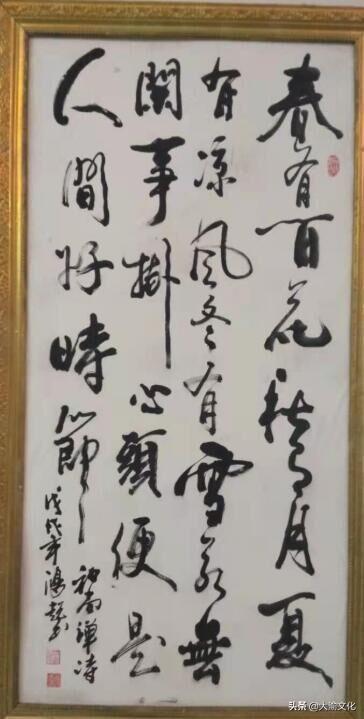 春有百花秋有月夏
有凉風冬有雪若無
閑事掛心頭便是
人間好時節
禅诗
戊戌年鴻
头条 @大渝文化